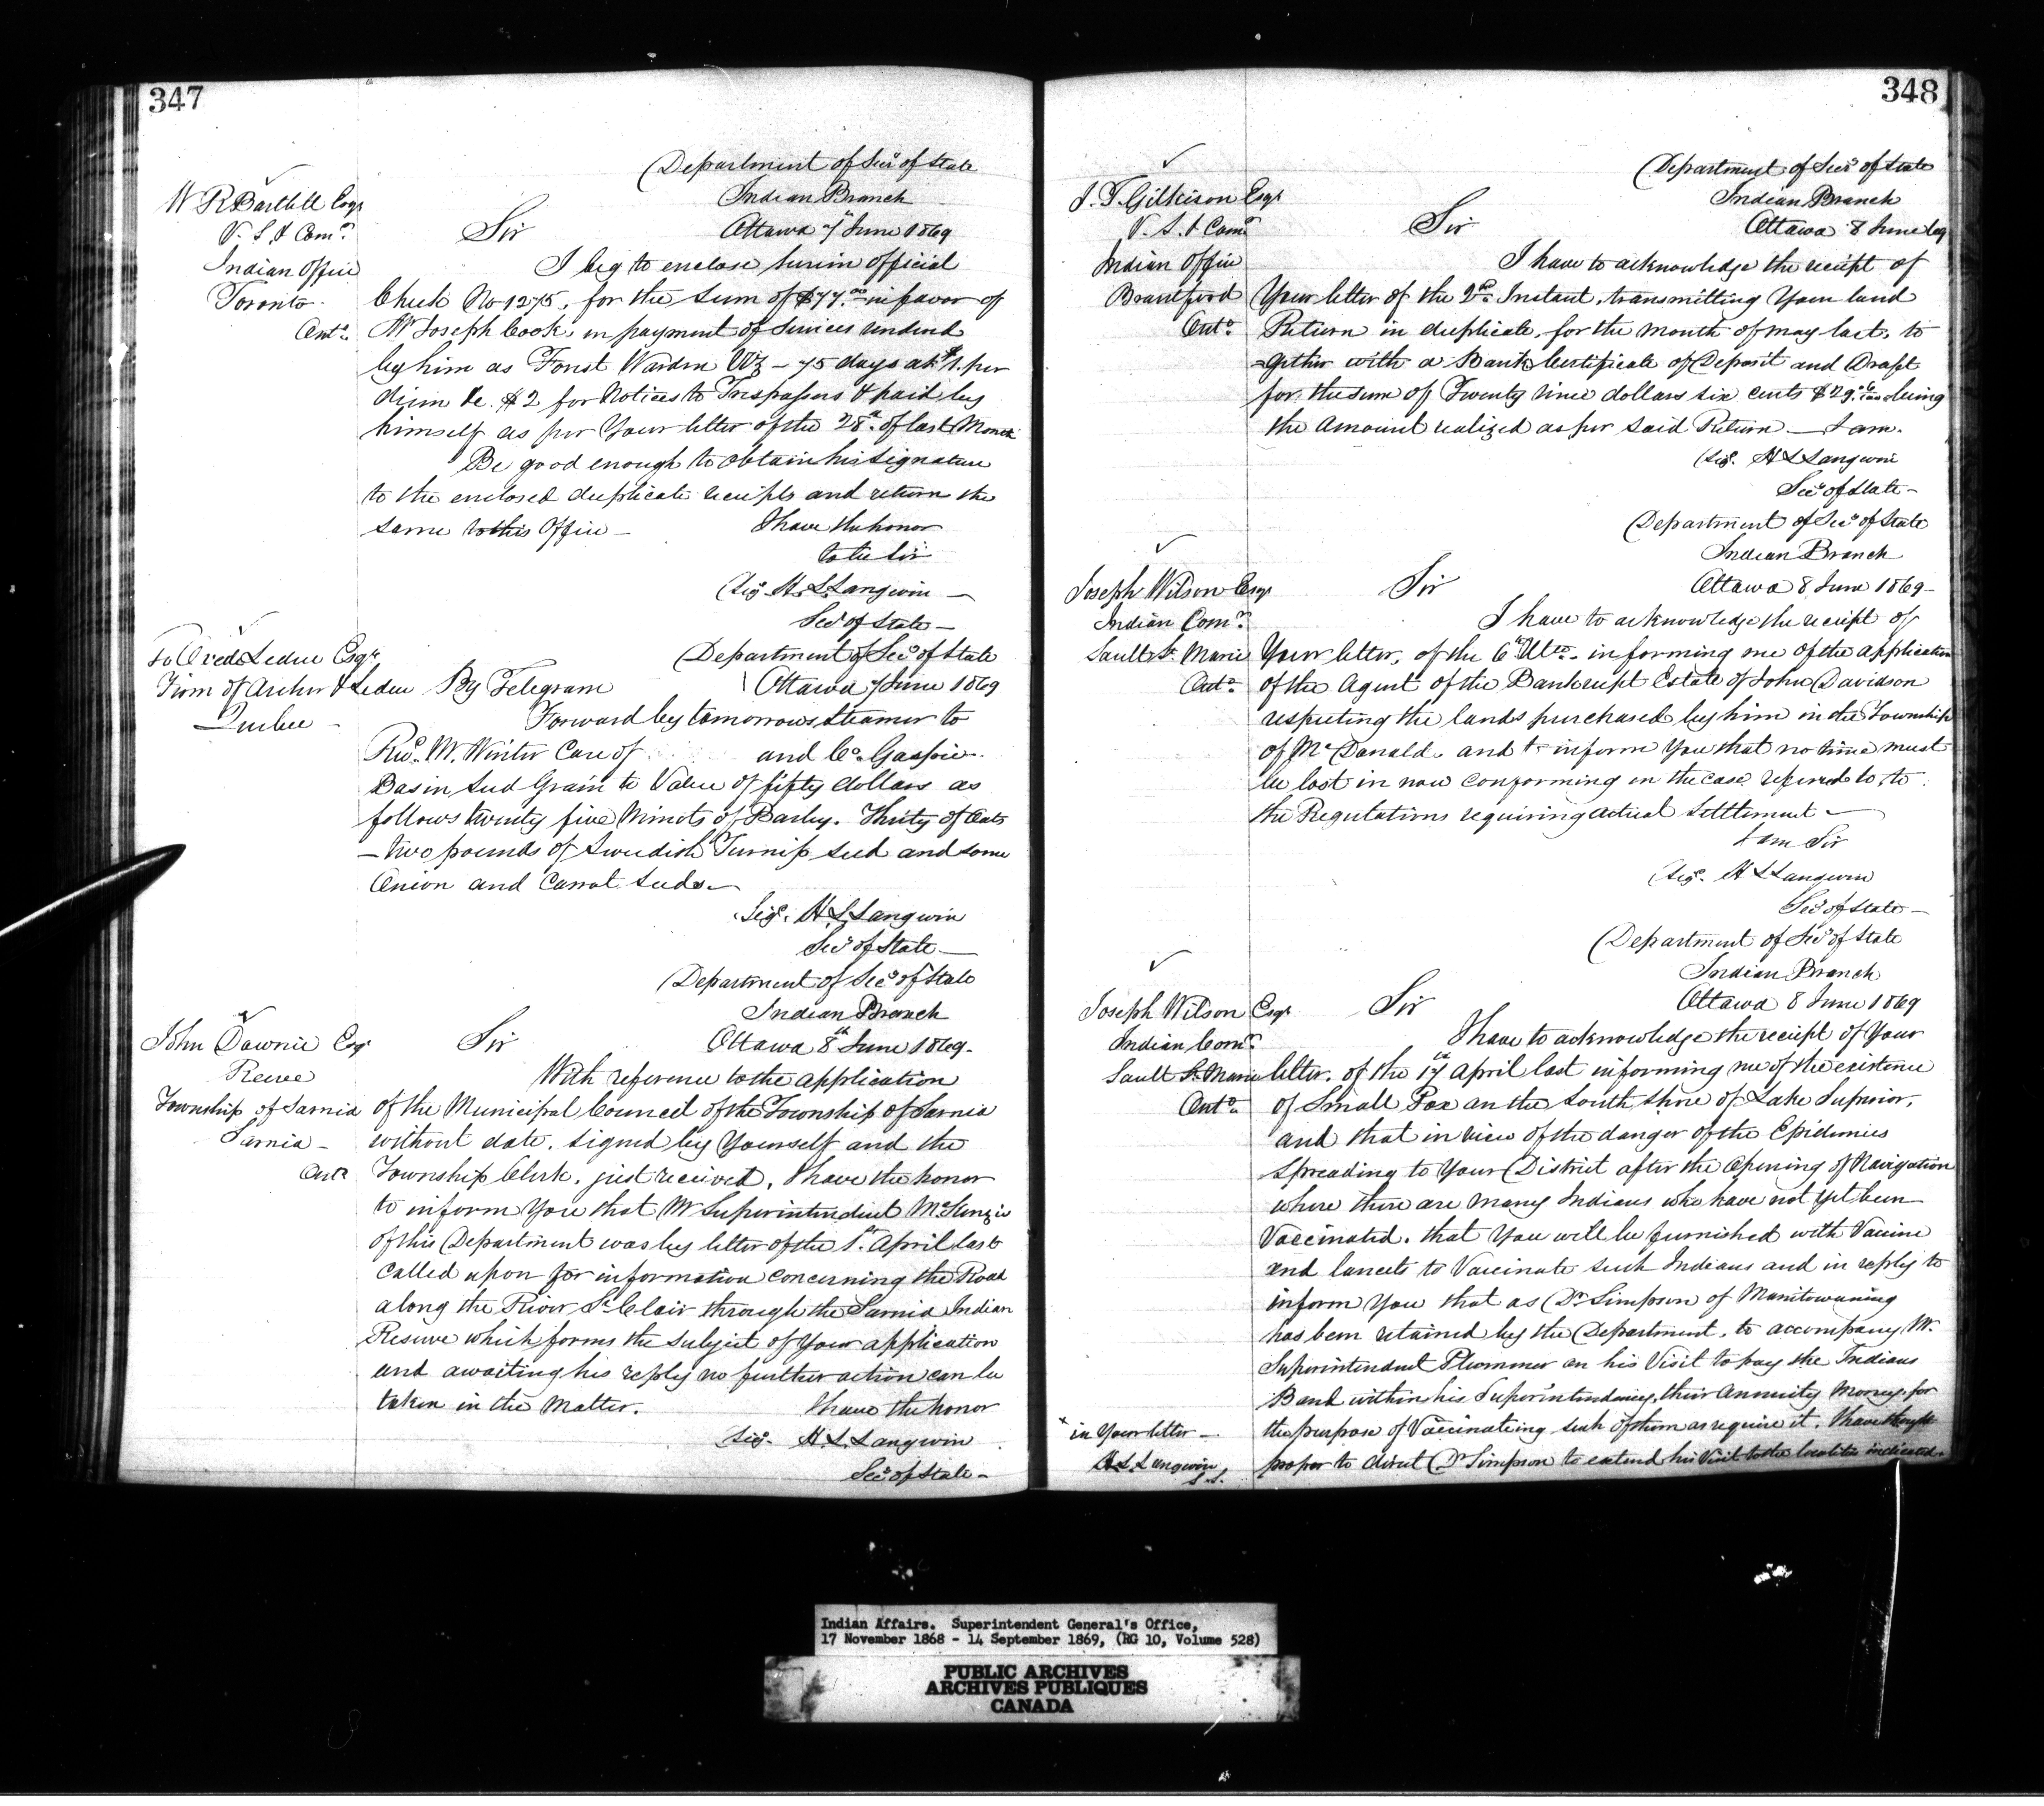 347
Department of Secy of State
Indian Branch
Ottawa 7 June 1869
W R Bartlett Esqr
V. S. I Comr.
Indian Office
Toronto.
Onto.
Sir
I beg to enclose herein official
Check No 1275. for the sum of $77.00 in favor of
Mr Joseph Cook, in payment of services rendered
by him as Forest Warden Viz – 75 days at $1. per
diem &c. $2 for Notices to Trespassers & paid by
himself as per Your letter of the 28th of last Month
Be good enough to obtain his signature
to the enclosed duplicate receipts and return the
same to this Office – I have the honor
to be Sir
Sigd. H. L. Langevin –
Secy of State –
To Leduc Esqr.
Firm of Archer & Leduc
Quebec –
Department of Secy of State
By Telegram Ottawa 7 June 1869
Forward by tomorrows steamer to
Revd. M. Winter Care of and Co. Gaspie
Basin Seed Grain to Value of fifty dollars as
follows twenty five Minots of Barley. Thirty of Oats
– two pounds of Swedish Turnip seed and some
Onion and Carrot Seeds –
Sigd. H. L. Langevin
Secy of State –
Department of Secy of State
Indian Branch
Ottawa 8th June 1869.
John Downie Esqr
Reeve
Township of Sarnia
Sarnia –
Onto
Sir
With reference to the application
of the Municipal Council of the Township of Sarnia
without date. signed by Yourself and the
Township Clerk. just received, I have the honor
to inform You that Mr Superintendent McKenzie
of this Department was by letter of the 1st. April last
called upon for information concerning the Road
along the River St Clair through the Sarnia Indian
Reserve which forms the subject of Your application
and awaiting his reply no further action can be
taken in the Matter. I have the honor
Sigd. H. L. Langevin
Secy of State –
348
Department of Secy of State
Indian Branch
Ottawa 8 June 69
J. T. Gilkison Esqr
V. S. I Comr
Indian Office
Brantford
Onto.
Sir
I have to acknowledge the receipt of
Your letter of the 2nd Instant, transmitting Your land
Return in duplicate, for the month of May last, to
-gether with a Bank Certificate of Deposit and Draft
for the sum of Twenty nine dollars six cents $29.6/100 being
the Amount realized as per said Return – I am.
Sigd. H L Langevin
Secy of State –
Department of Secy of State
Indian Branch
Ottawa 8 June 1869 –
Joseph Wilson Esqr
Indian Comr.
Sault St. Marie
Onto.
Sir
I have to acknowledge the receipt of
Your letter, of the 6th Ulto. informing me of the application
of the Agent of the Bankrupt Estate of John Davidson
respecting the lands purchased by him in the Township
of McDonald. and to inform You that no time must
be lost in now conforming in the case referred to, to
the Regulations requiring actual settlement –
I am Sir
Sigd. H L Langevin
Secy of State –
Department of Secy of State
Indian Branch
Ottawa 8 June 1869
Joseph Wilson Esqr
Indian Comr.
Sault St. Marie
Onto.
Sir
I have to acknowledge the receipt of Your
letter. of the 17th April last informing me of the existence
of Small Pox on the South shore of Lake Superior,
and that in view of the danger of the Epidemics
spreading to Your District after the Opening of Navigation
where there are many Indians who have not yet been
Vaccinated. that You will be furnished with Vaccine
and lancets to Vaccinate such Indians and in reply to
inform You that as Dr Simpson of Manitowaning
has been retained by the Department, to accompany Mr.
Superintendent Plummer on his Visit to pay the Indians
Band within his Superintendency, their Annuity Moneys for
the purpose of Vaccinateing such of them as require it. I have thought
proper to direct Dr Simpson to extend his Visit to the localities indicated x
x in Your letter –
H. L. Langevin
S. S.
Indian Affairs. Superintendent General's Office,
17 November 1868 - 14 September 1869, (RG 10, Volume 528)
PUBLIC ARCHIVES
ARCHIVES PUBLIQUES
CANADA